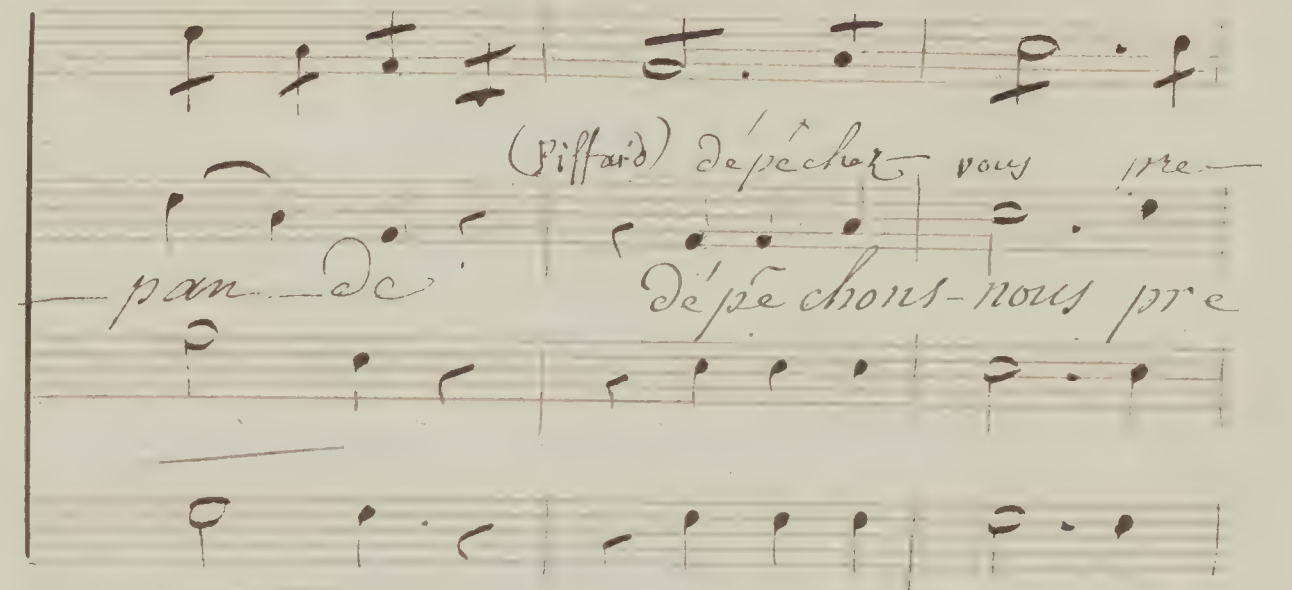 (Piffard) dépêchez - vous pre -
pan - de dépêchons - nous pre